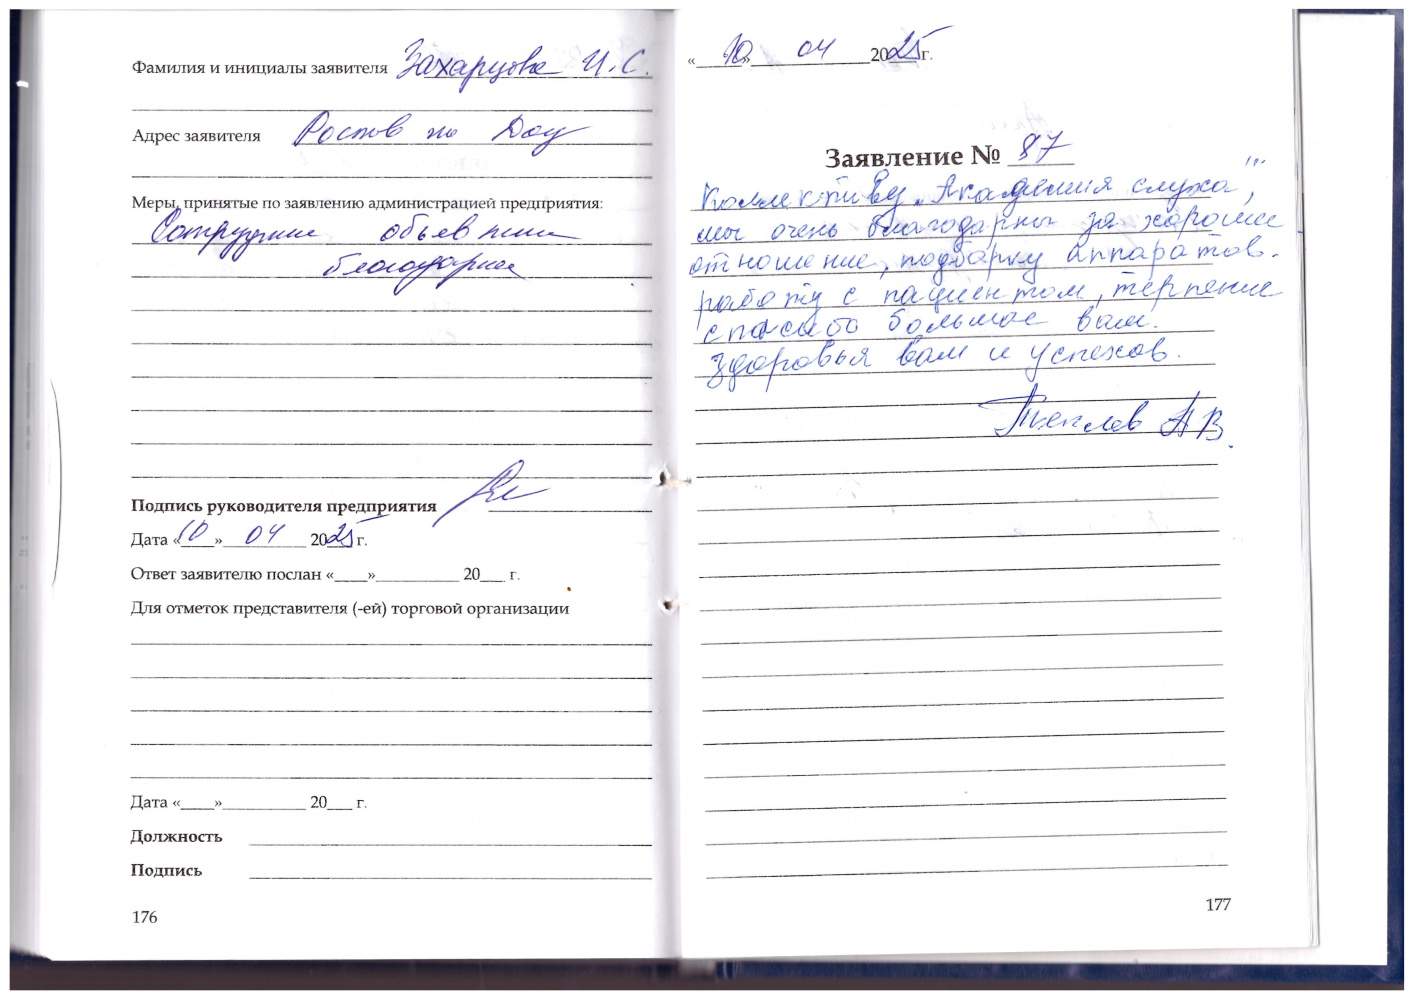 Фамилия и инициалы заявителя Захарцова И.С.
Адрес заявителя Ростов на Дону
Меры, принятые по заявлению администрацией предприятия:
Сотруднике объявлена
благодарность
Подпись руководителя предприятия
Дата «10» 04 2025 г.
Ответ заявителю послан «____»__________ 20___ г.
Для отметок представителя (-ей) торговой организации
Дата «____»__________ 20___ г.
Должность
Подпись
176
«10» 04 2025 г.
Заявление № 87
Коллективу „Академия слуха",
мы очень благодарны за хорошее
отношение, подборку аппаратов.
работу с пациентом, терпение
спасибо большое вам.
Здоровья вам и успехов.
А В.
177